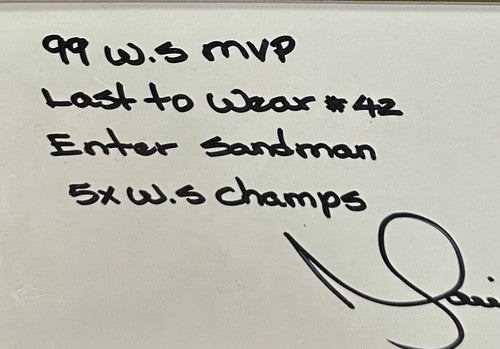 99 W.S MVP
Last to Wear #42
Enter Sandman
5x W.S Champs